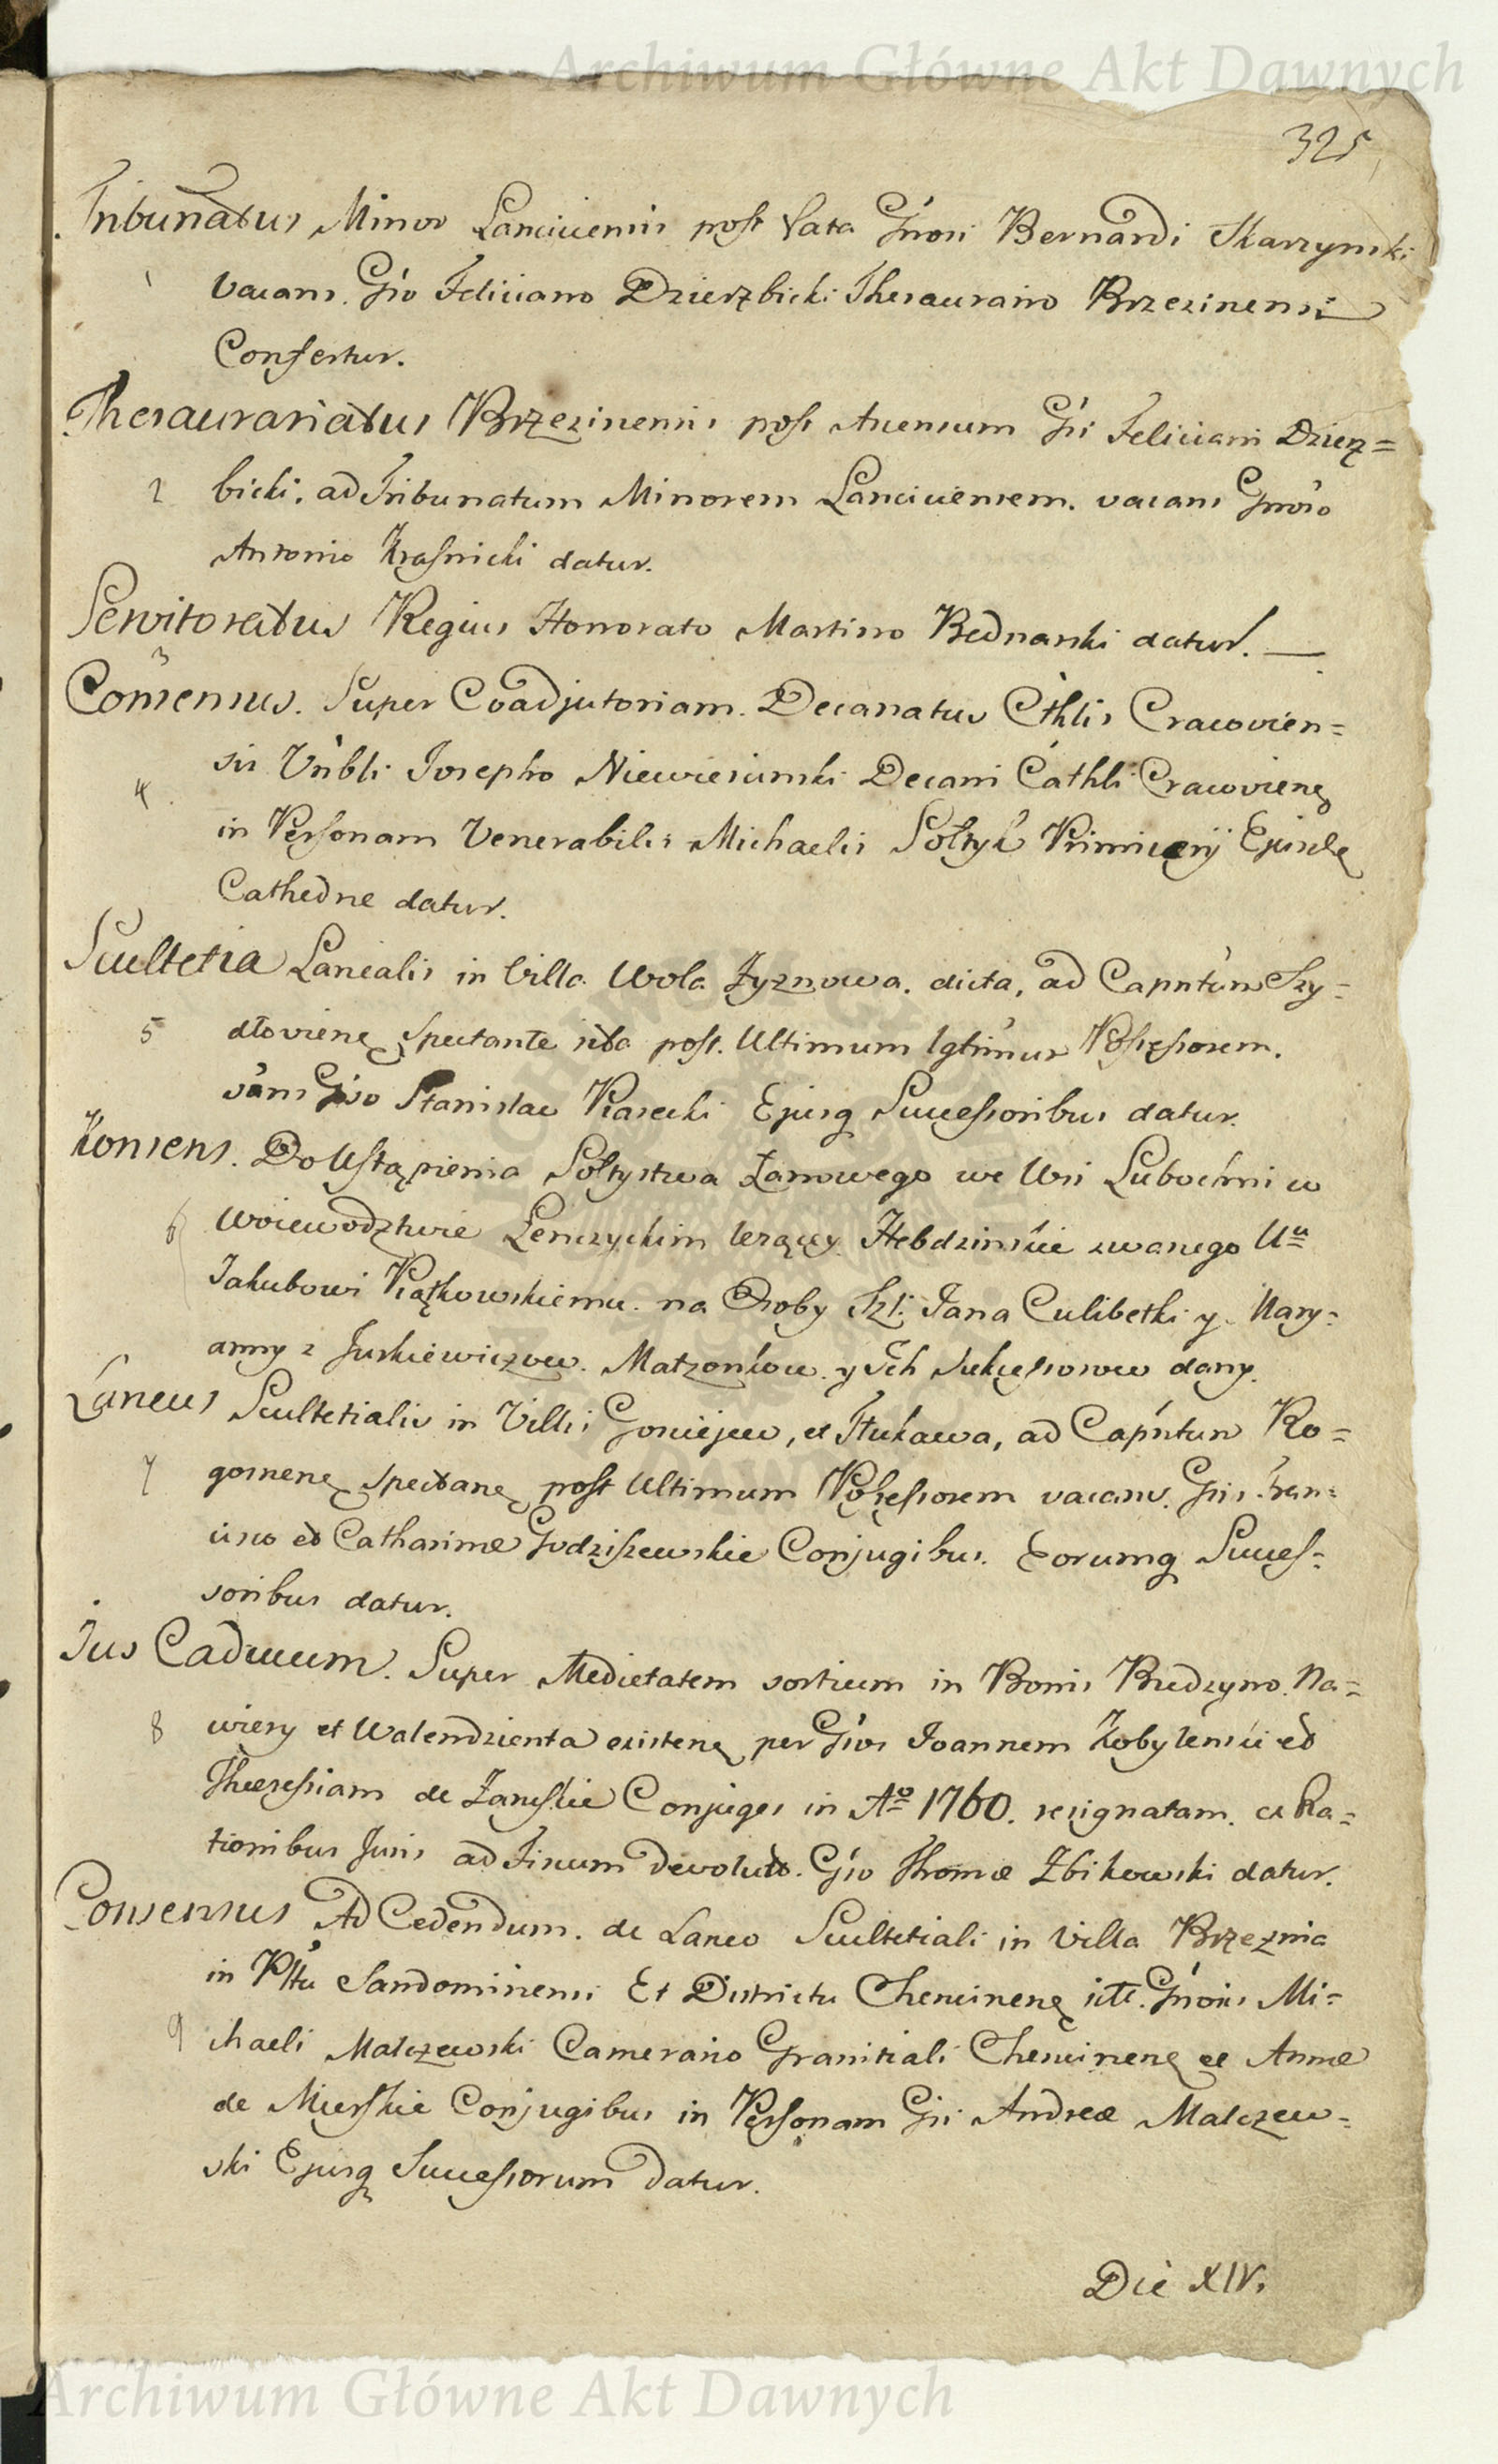 Archiwum Główne Akt Dawnych
325
Tribunatus Minor Lanciciensis post Fata Gnosi Bernardi Skarzynski
1 vacans. Gso Feliciano Dzierzbicki Thesaurario Brzezinensi
Confertur.
Thesaurariatus Brzezinensis post Ascensum Gsi Feliciani Dzierz=
2 bicki. ad Tribunatum Minorem Lanciciensem. vacans Gnoso
Antonio Krasnicki datur.
Servitoratus Regius Honorato Martino Bednarski datur. —
3
Consensus. Super Coadjutoriam. Decanatus Cthlis Cracovien=
4 sis Vnbli Josepho Niewiesiński Decani Cathli Cracovieng
in Personam Venerabilis Michaelis Sołtyk Primicerij Ejusdę
Cathedrae datur.
Scultetia Lanealis in Villa Wola Zyznowa. dicta, ad Capntum Szy=
5 dłovieng spectante sita post. Ultimum lgtimum Possessorem.
vans Gso Stanislao Piasecki Ejusq Successoribus datur.
Konsens. Do Ustąpienia Sołtystwa Łanowego we Wsi Lubochni w
6 Woiewodztwie Lenczyckim lezącey Hebdzinskie zwanego Uu
Jakubowi Piątkowskiemu. na Osoby Szl: Jana Culibetki y Mary=
anny z Jurkiewiczow. Małzonkow. y Jch Sukcessorow dany.
Laneus Scultetialis in Villis Goniejew, et Stukawa, ad Capntum Ro=
7 gosneng spectang post Ultimum Possessorem vacans. Gsis Fran=
cisco et Catharinae Godziszewskie Conjugibus. Eorumq Succes=
soribus datur.
Jus Caducum. Super Medietatem sortium in Bonis Budzyno. Na=
8 wiery et Walendzienta existeng per Gsos Joannem Kobylenski et
Theressiam de Zanskie Conjuges in Ao 1760. resignatam. ex Ra=
tionibus Juris ad Fiscum devoluto. Gso Thomae Zbikowski datur.
Consensus Ad Cedendum. de Laneo Scultetiali in Villa Brzeznica
in Pltu Sandomiriensi Et Districtu Chencineng site. Gnosis Mi=
9 chaeli Malczewski Camerario Granitiali Chencineng et Annae
de Mierskie Conjugibus in Personam Gsi Andreae Malczew=
ski Ejusq Successorum datur.
Die XIV.
Archiwum Główne Akt Dawnych